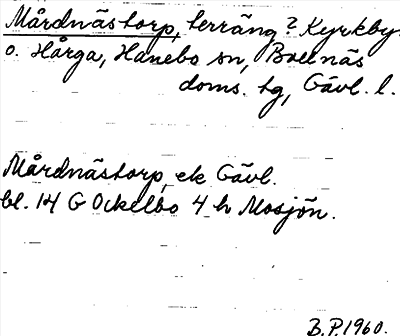 Mårdnästorp, terräng? Kyrkby.
o. Hårga, Hanebo sn, Bollnäs
doms. tg, Gävl. l.
Mårdnästorp ek Gävl.
bl. 14 G Ockelbo 4 h Mosjön.
B.P. 1960.